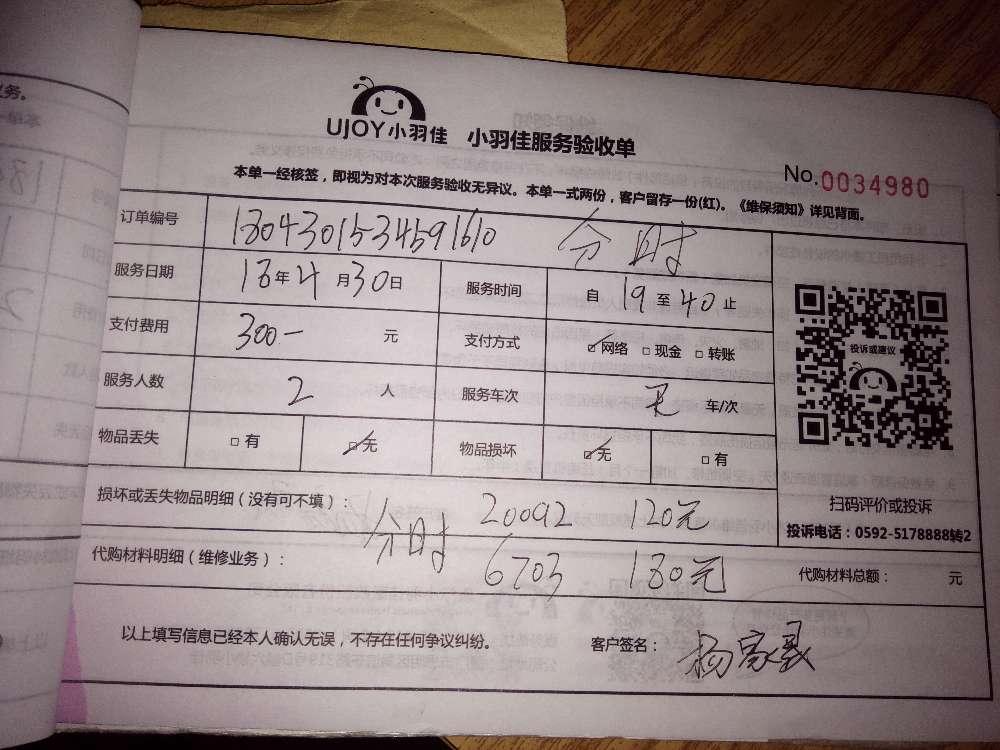 务。
UJOY小羽佳 小羽佳服务验收单
No.0034980
本单一经核签，即视为对本次服务验收无异议。本单一式两份，客户留存一份(红)。《维保须知》详见背面。
订单编号 1804301534591610 分时
服务日期 18年4月30日 服务时间 自19至40止
支付费用 300一 元 支付方式 网络 现金 转账
服务人数 2人 服务车次 无 车/次
物品丢失 有 无 物品损坏 无 有
投诉或建议
扫码评价或投诉
投诉电话：0592-5178888转2
损坏或丢失物品明细（没有可不填）：
分时 20092 120元
代购材料明细（维修业务）： 6703 180元 代购材料总额： 元
以上填写信息已经本人确认无误，不存在任何争议纠纷。 客户签名：杨家